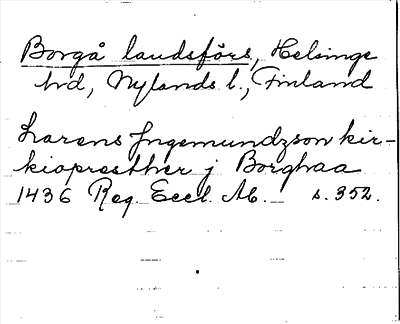 Borgå landsförs, Helsinge
hrd, Nylands l., Finland
Larens Jngemundzson kir-
kiopresther j Borghaa
1436 Reg. Eccl. Ab. s. 352.